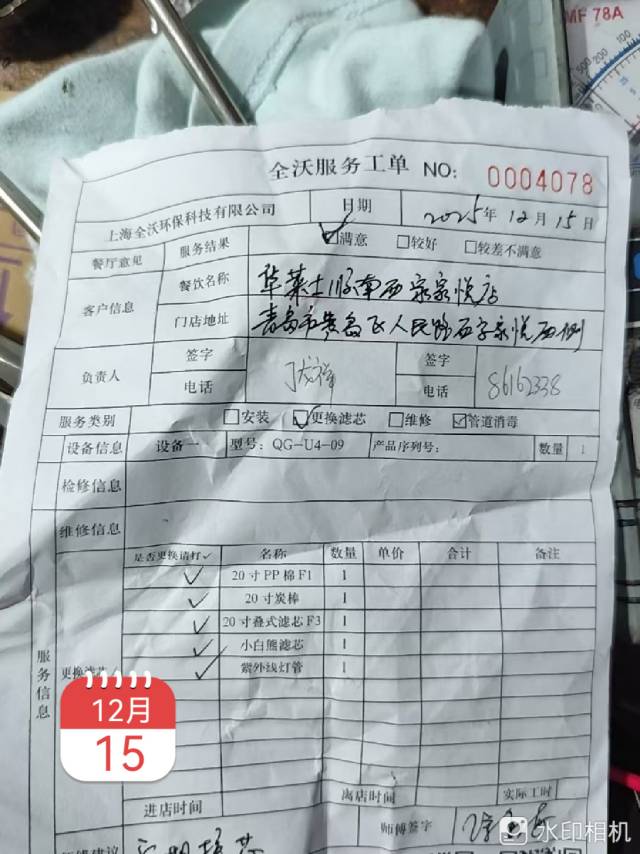 MF 78A
全沃服务工单 NO: 0004078
上海全沃环保科技有限公司 日期 2025年12月15日
餐厅意见 服务结果 满意 较好 较差不满意
客户信息 餐饮名称 华莱士
门店地址 青岛市黄岛区人民路石子家悦西侧
负责人 签字 签字
电话 电话 86162338
服务类别 安装 更换滤芯 维修 管道消毒
设备信息 设备一 型号: QG-U4-09 产品序列号: 数量 1
检修信息
维修信息
服务信息
更换滤芯 是否更换请打✓ 名称 数量 单价 合计 备注
✓ 20寸PP棉F1 1
✓ 20寸炭棒 1
✓ 20寸叠式滤芯F3 1
✓ 小白熊滤芯 1
✓ 紫外线灯管 1
12月
15
进店时间 离店时间 实际工时
师傅签字
建议
水印相机